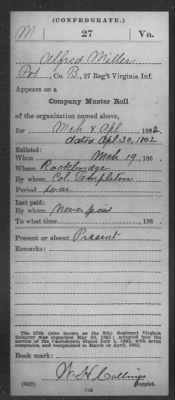 (CONFEDERATE.)
M 27 Va.
Alfred Miller
Pvt, Co. B, 27 Reg't Virginia Inf.
Appears on a
Company Muster Roll
of the organization named above,
for Mch & Apl, 1862
dated Apl. 30, 1862
Enlisted:
When Mch 19, 186
Where Rockbridge
By whom Col. Templeton
Period
Last paid:
By whom Never paid
To what time 186
Present or absent Present
Remarks:
The 27th (also known as the 6th) Regiment Virginia
Infantry was organized May 30, 1861; accepted into the
service of the Confederate States July 1, 1861, with seven
companies, and reorganized in March or April, 1862.
Book mark:
W. H. Collins
(642) Copyist.